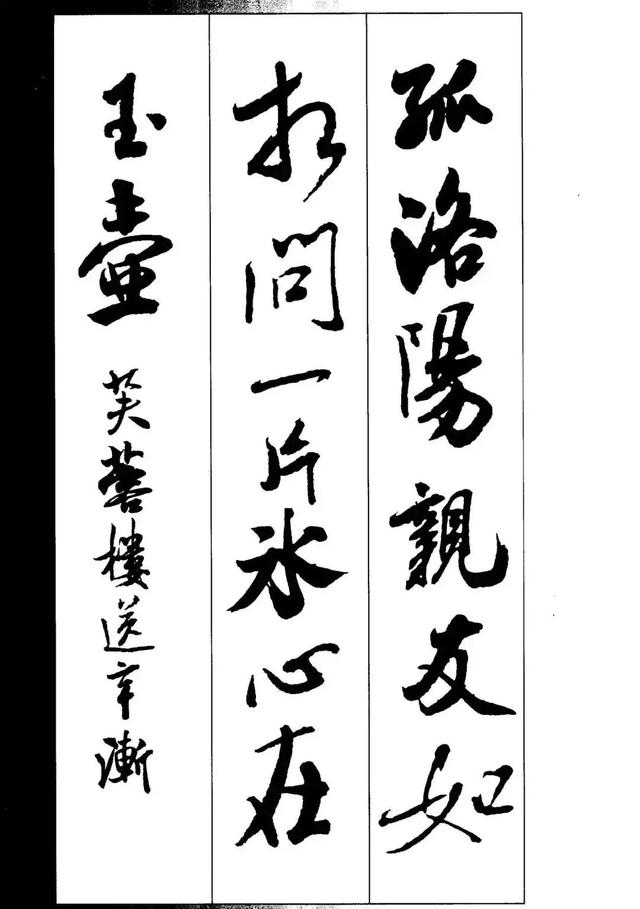 孤洛陽親友如
相問一片冰心在
玉壺
芙蓉樓送辛漸